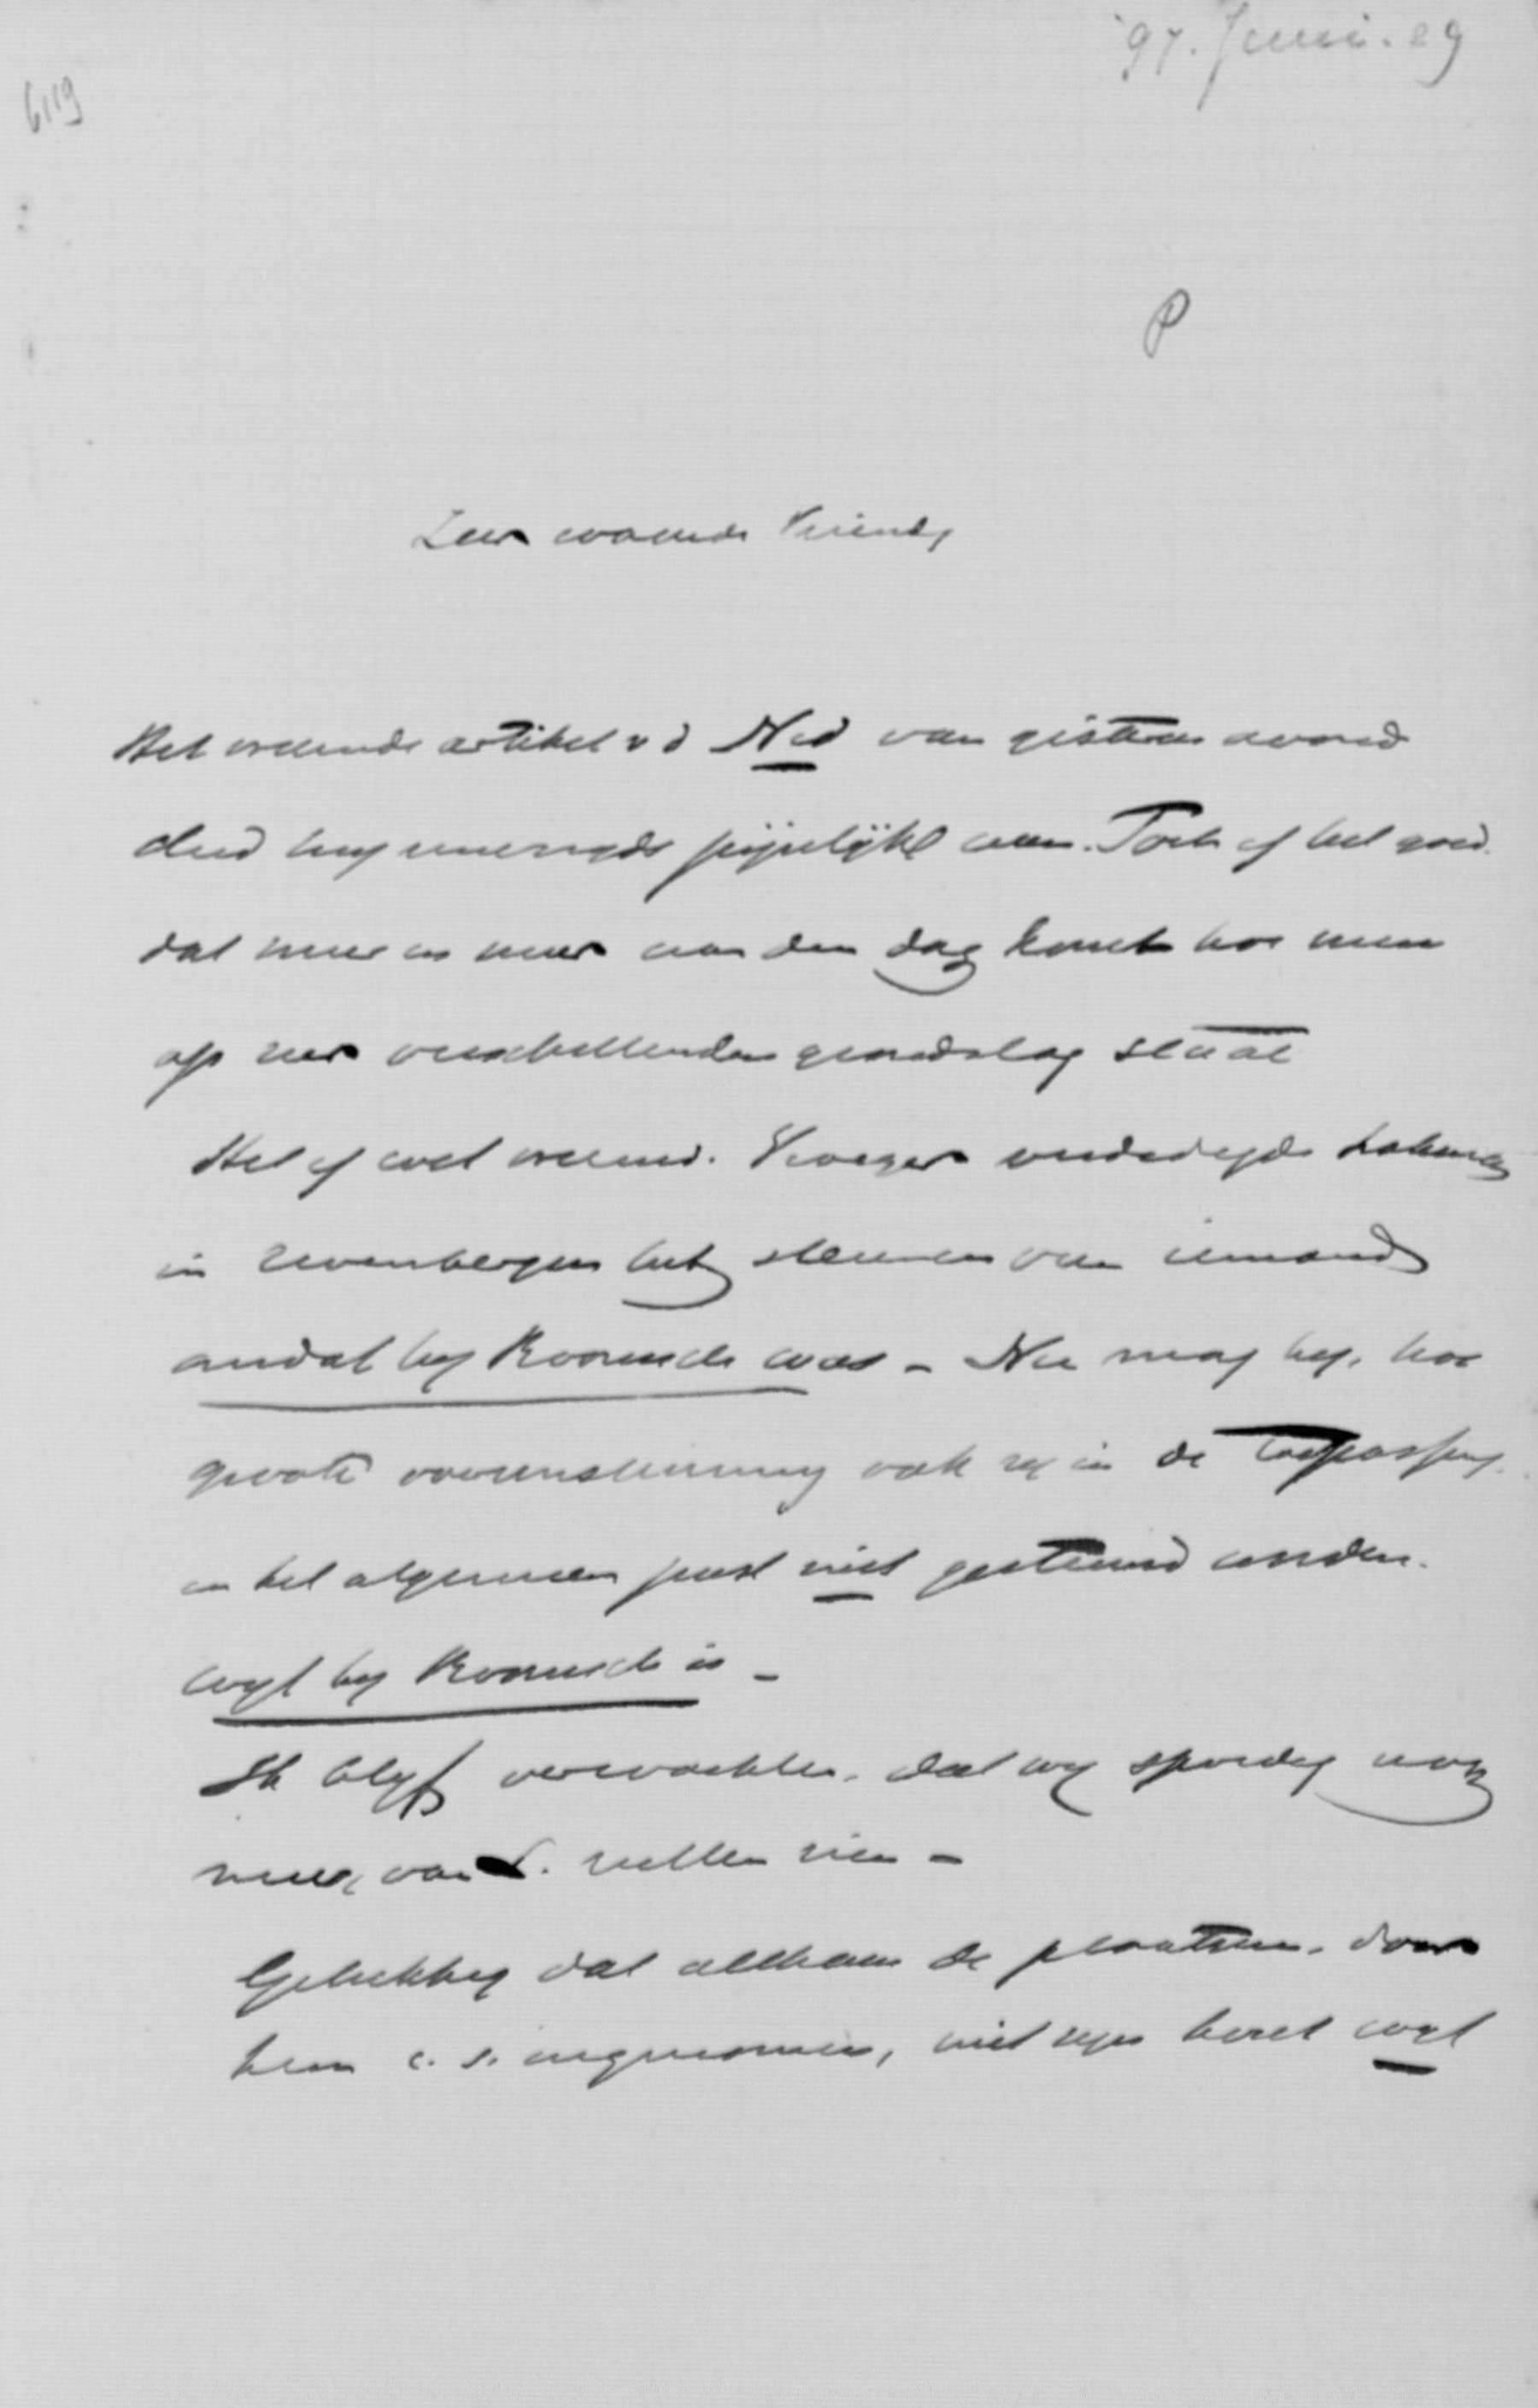 '97. Juni. 29
6119
P
Zeer waarde Vriend,
Het vreemde artikel v d Ned van gisteren avond
deed my eenerzyds pijnlijk aan. Toch is het goed
dat meer en meer aan den dag komt hoe men
op zeer verschillenden grondslag staat
Het is wel vreemd. Vroeger verdedigde Lohman
in Zevenbergen het steunen van iemand
omdat hy Roomsch was - Nu mag hy, hoe
groote overeenstemming ook zy in de toepassing
in het algemeen juist niet gesteund worden.
wyl hy Roomsch is -
Ik blyf verwachten, dat wy spoedig nog
meer van L. zullen zien -
Gelukkig dat althans de plaatsen, door
hem c. s. ingenomen, niet zyn bezet wyl